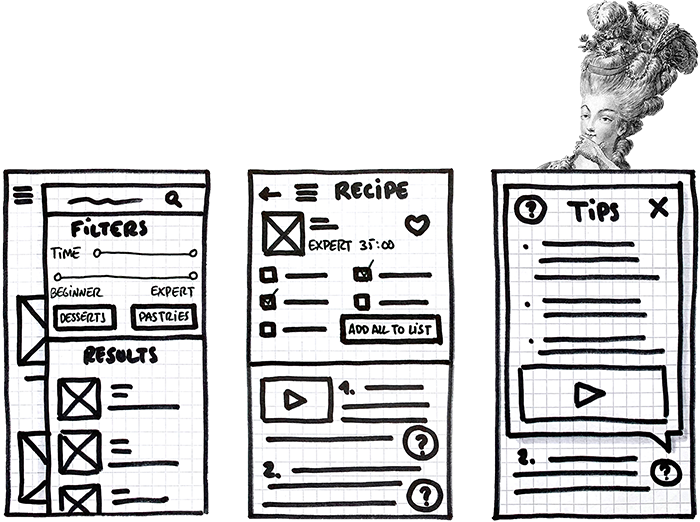 FiLTERS
TiME
BEGINNER EXPERT
DESSERTS PASTRiES
RESULTS
RECiPE
EXPERT 35:00
ADD ALL TO LiST
1.
?
2.
?
? TiPS X
2.
?